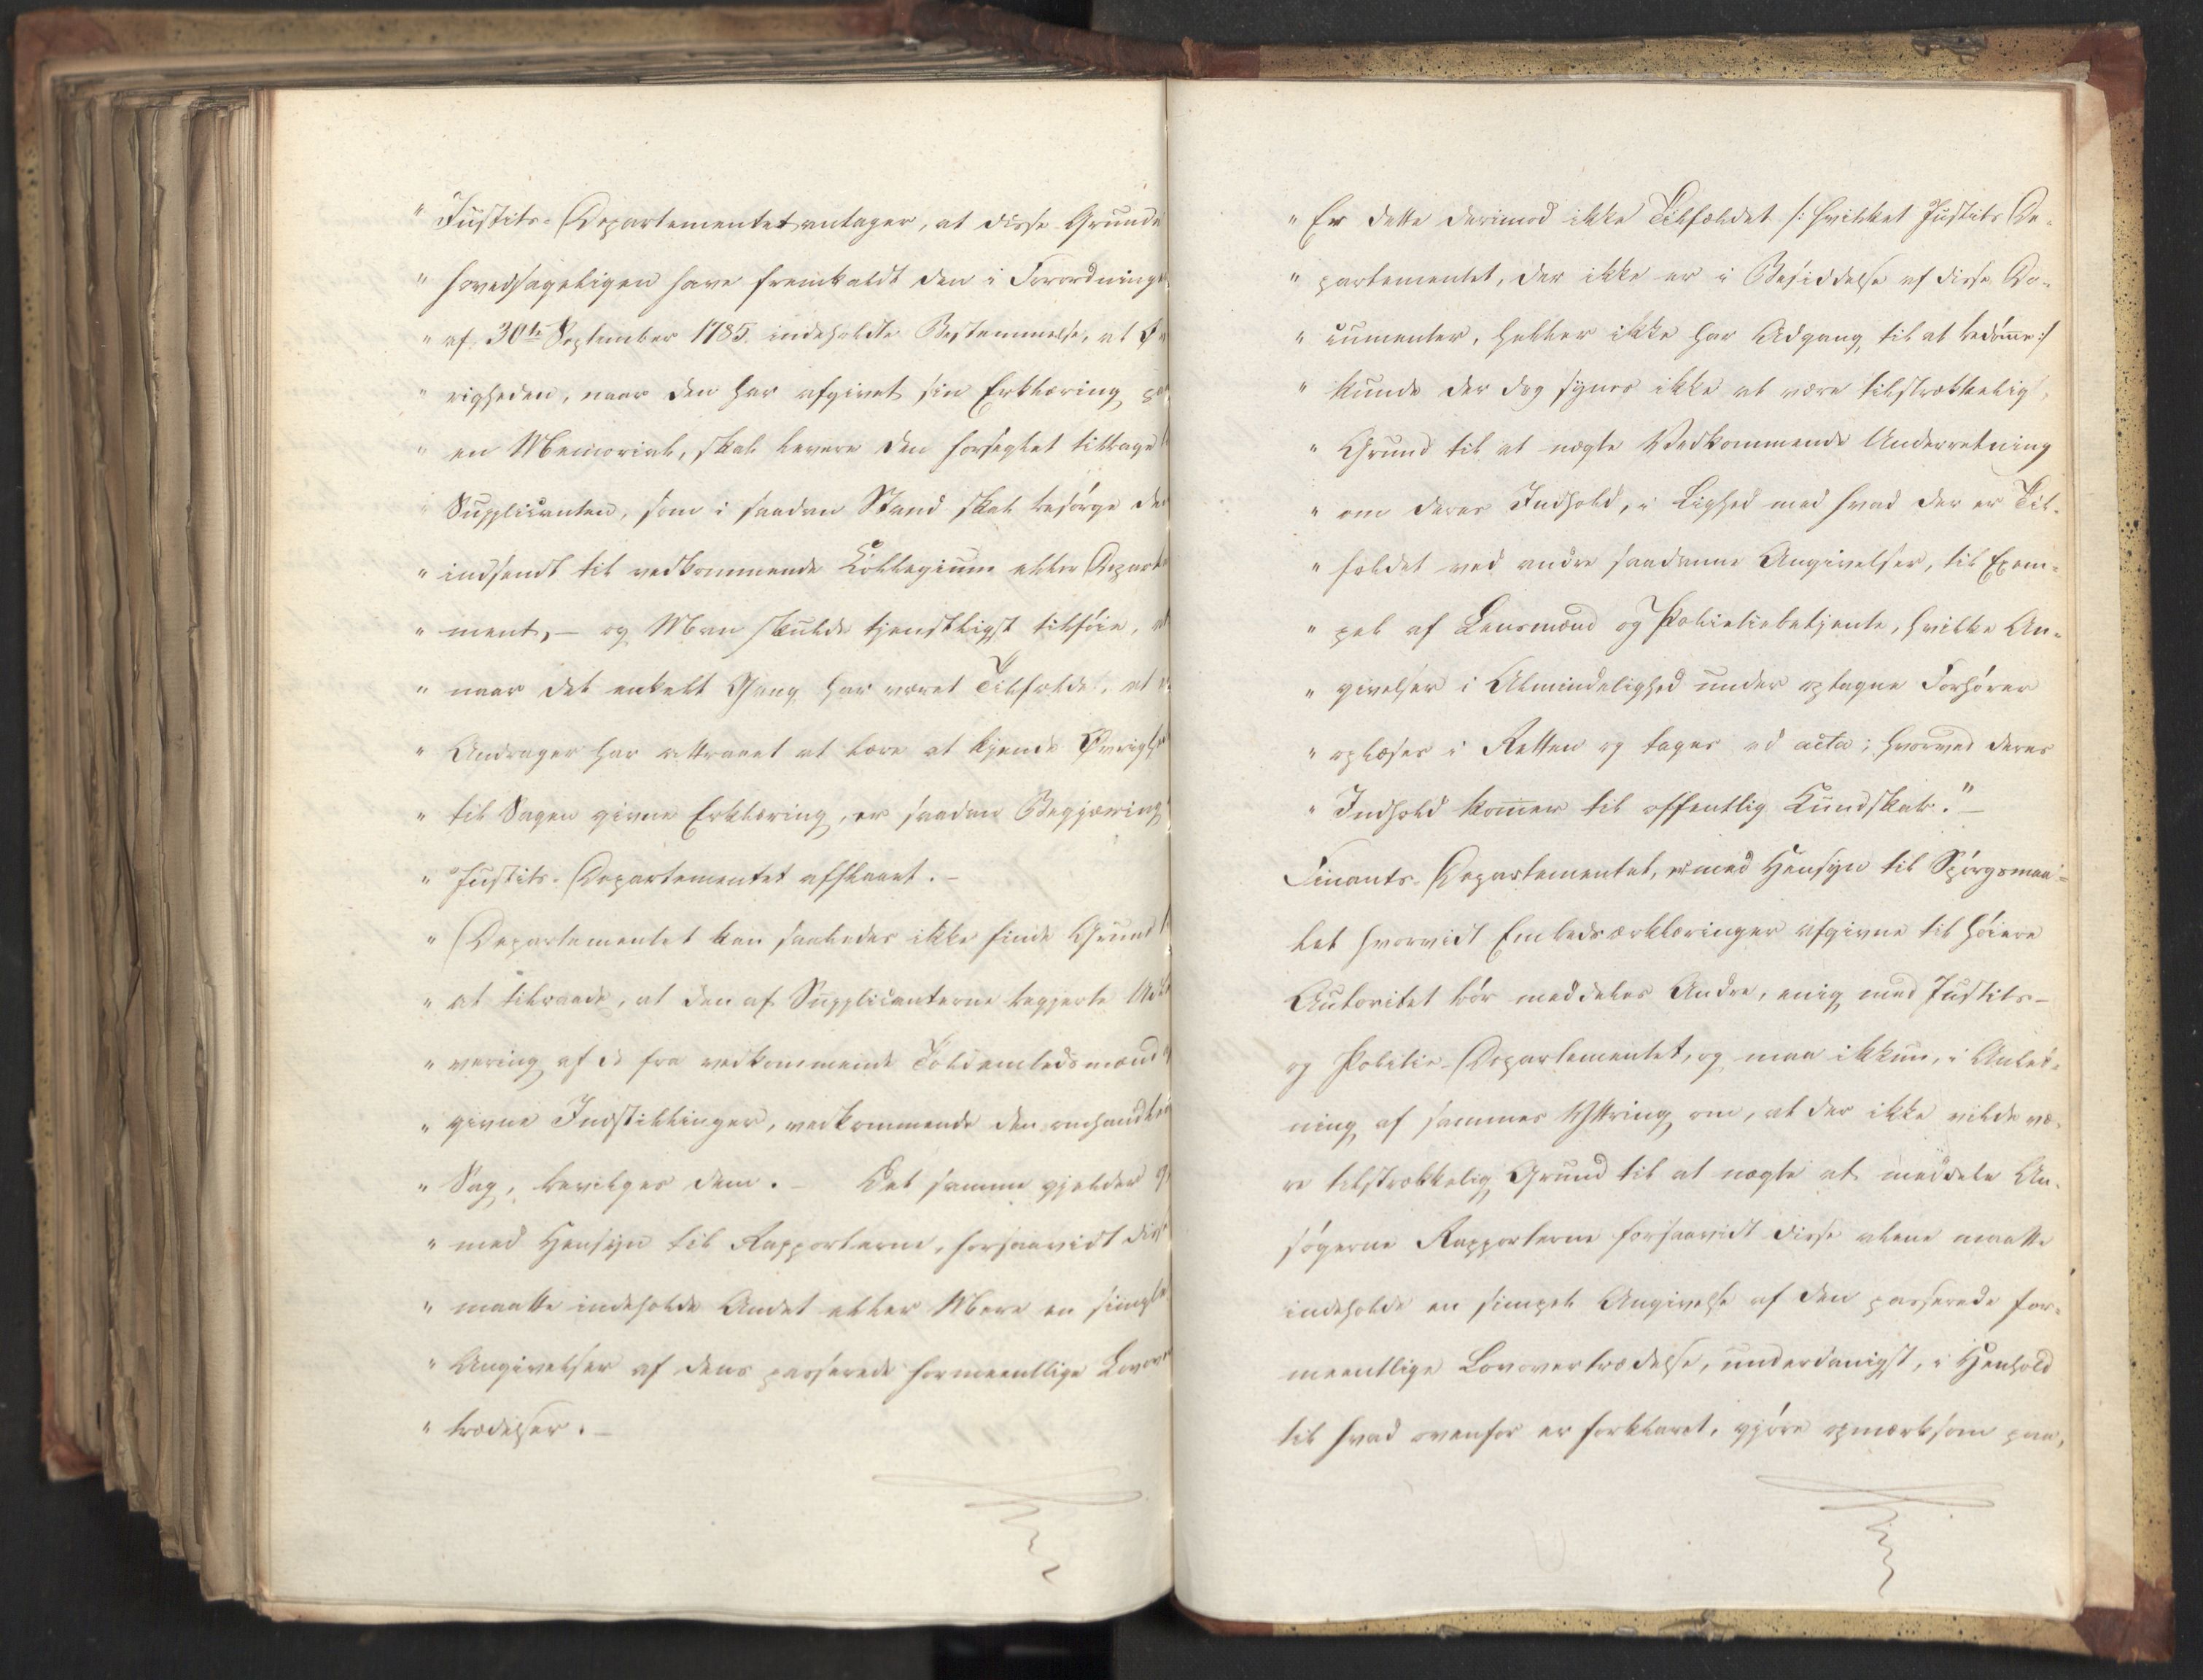 " Justits-Departementet antager, at disse Grunde
" hovedsageligen have fremkaldt den i Forordningen
" af 30te September 1785. indeholdte Bestemmelse, at Øv
" righeden, naar den har afgivet sin Erklæring paa
" en Memorial, skal levere den forseglet tilbage t
" Supplicanten, som i saadan Stand skal besørge den
" indsendt til vedkommende Collegium eller Departe
" ment, – og Man skulde tjenstligst tilføie, at
" naar det enkelt Gang har været Tilfældet, at e
" Andrager har attraaet at lære at kjende Øvrighe
" til Sagen givne Erklæring, er saadan Begjæring
" Justits-Departementet afslaaet. –
" Departementet kan saaledes ikke finde Grund t
" at tilraade, at den af Supplicanterne begjerte Udle
" vering af de fra vedkommende Toldembedsmænd
" givne Indstillinger, vedkommende den omhandlede
" Sag, bevilges dem. – Det samme gjelder og
" med Hensyn til Rapporterne, forsaavidt diss
" maatte indeholde Andet eller Mere en simple
" Angivelser af dens passerede formeentlige Lovover
" trædelser. –
" Er dette derimod ikke Tilfældet /: hvilket Justits De-
" partementet, der ikke er i Besiddelse af disse Do-
" cumenter, heller ikke har Adgang til at bedømme :/
" kunde der dog synes ikke at være tilstrækkelig
" Grund til at negte Vedkommende Underretning
" om deres Indhold, i Lighed med hvad der er Til-
" fældet ved andre saadanne Angivelser, til Exem-
" pel af Lensmænd og Politiebetjente, hvilke An-
" givelser i Almindelighed under optagne Forhører
" oplæses i Retten og tages ad acta; hvorved deres
" Indhold kommer til offentlig Kundskab." –
Finants-Departementet, er med Hensyn til Spørgsmaa-
let hvorvidt Embedserklæringer afgivne til høiere
Autoritet bør meddeles Andre, enig med Justits-
og Politie-Departementet, og maa ikkun, i Anled-
ning af sammes Yttring om, at der ikke vilde væ-
re tilstrækkelig Grund til at negte at meddele An-
søgerne Rapporterne forsaavidt disse alene maatte
indeholde en simpel Angivelse af den passerede for-
meentlige Lovovertrædelse, underdanigst, i Henhold
til hvad ovenfor er forklaret, gjøre opmærksom paa,